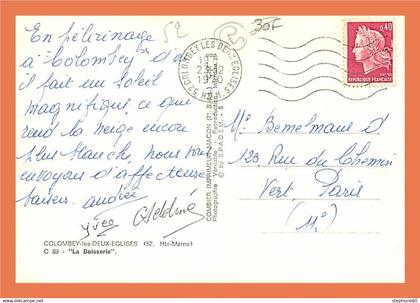 En pèlerinage
à Colombey d'où
il fait un soleil
magnifique ce que
rend la neige encore
plus blanche, nous vous
envoyons d'affectueux
baisers. andrée
yves
52
30F
COLOMBEY LES DEUX EGLISES
52 Hte MARNE
0,40
REPUBLIQUE FRANÇAISE
COMBIER IMPRIMEUR MACON
Photographie Véritable - Reproduction
© by SPADEM
Mr Bemelmans d
123 Rue du Chemin
Vert. Paris
(11e)
COLOMBEY-les-DEUX-EGLISES (52, Hte-Marne)
C 69 - "La Boisserie".